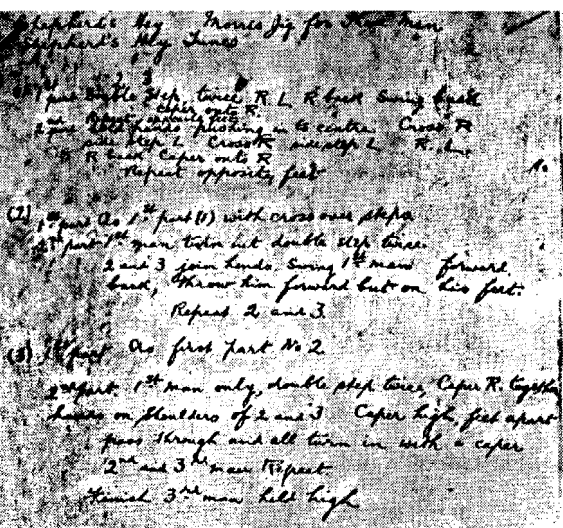 Shepherd's Hey Morris Jig for Three Men
Shepherd's Hey Tunes
(1) 1 part Double Step twice R L R back Swing back
Caper onto R.
Repeat opposite feet
2 part Hold hands in to centre Cross R
side step L Cross R side step L R. L.
R back Caper onto R
Repeat opposite feet
(2) 1st part As 1st part (1) with cross over steps
2nd part 1st man turn double step twice
2 and 3 join hands Swing 1st man forward
back, throw him forward but on his feet.
Repeat 2 and 3
(3) 1st part As first part No 2
2nd part. 1st man only, double step twice, Caper R. together
hands on shoulders of 2 and 3 Caper high, feet apart
pass through and all turn in with a caper
2nd and 3rd man Repeat
Finish 3rd man held high